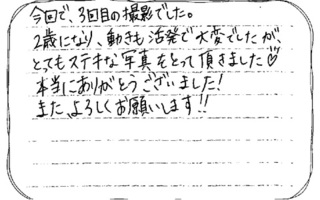 今回で、3回目の撮影でした。
2歳になり、動きも活発で大変でしたが、
とってもステキな写真をとって頂きました♡
本当にありがとうございました!
また、よろしくお願いします!!